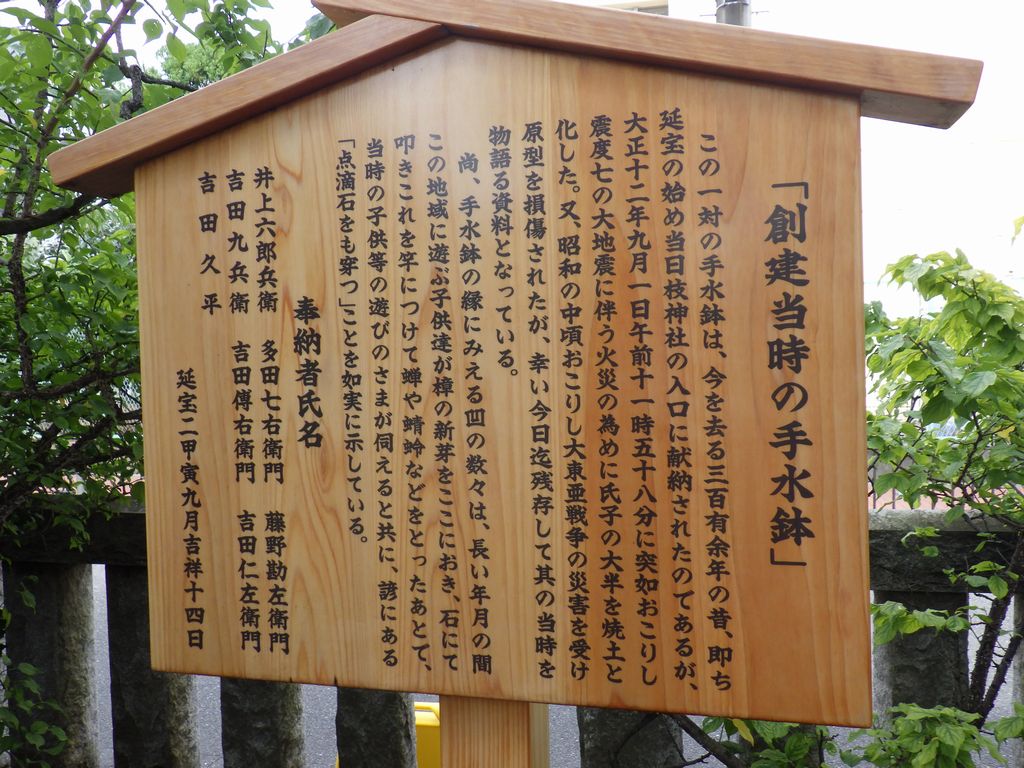 「創建当時の手水鉢」
この一対の手水鉢は、今を去る三百有余年の昔、即ち
延宝の始め当日枝神社の入口に献納されたのであるが、
大正十二年九月一日午前十一時五十八分に突如おこりし
震度七の大地震に伴う火災の為めに氏子の大半を焼土と
化した。又、昭和の中頃おこりし大東亜戦争の災害を受け
原型を損傷されたが、幸い今日迄残存して其の当時を
物語る資料となっている。
尚、手水鉢の縁にみえる凹の数々は、長い年月の間
この地域に遊ぶ子供達が樟の新芽をここにおき、石にて
叩きこれを竿につけて蝉や蜻蛉などをとったあとで、
当時の子供等の遊びのさまが伺えると共に、諺にある
「点滴石をも穿つ」ことを如実に示している。
奉納者氏名
井上六郎兵衛 多田七右衛門 藤野勘左衛門
吉田九兵衛 吉田傳右衛門 吉田仁左衛門
吉田久平
延宝二甲寅九月吉祥十四日